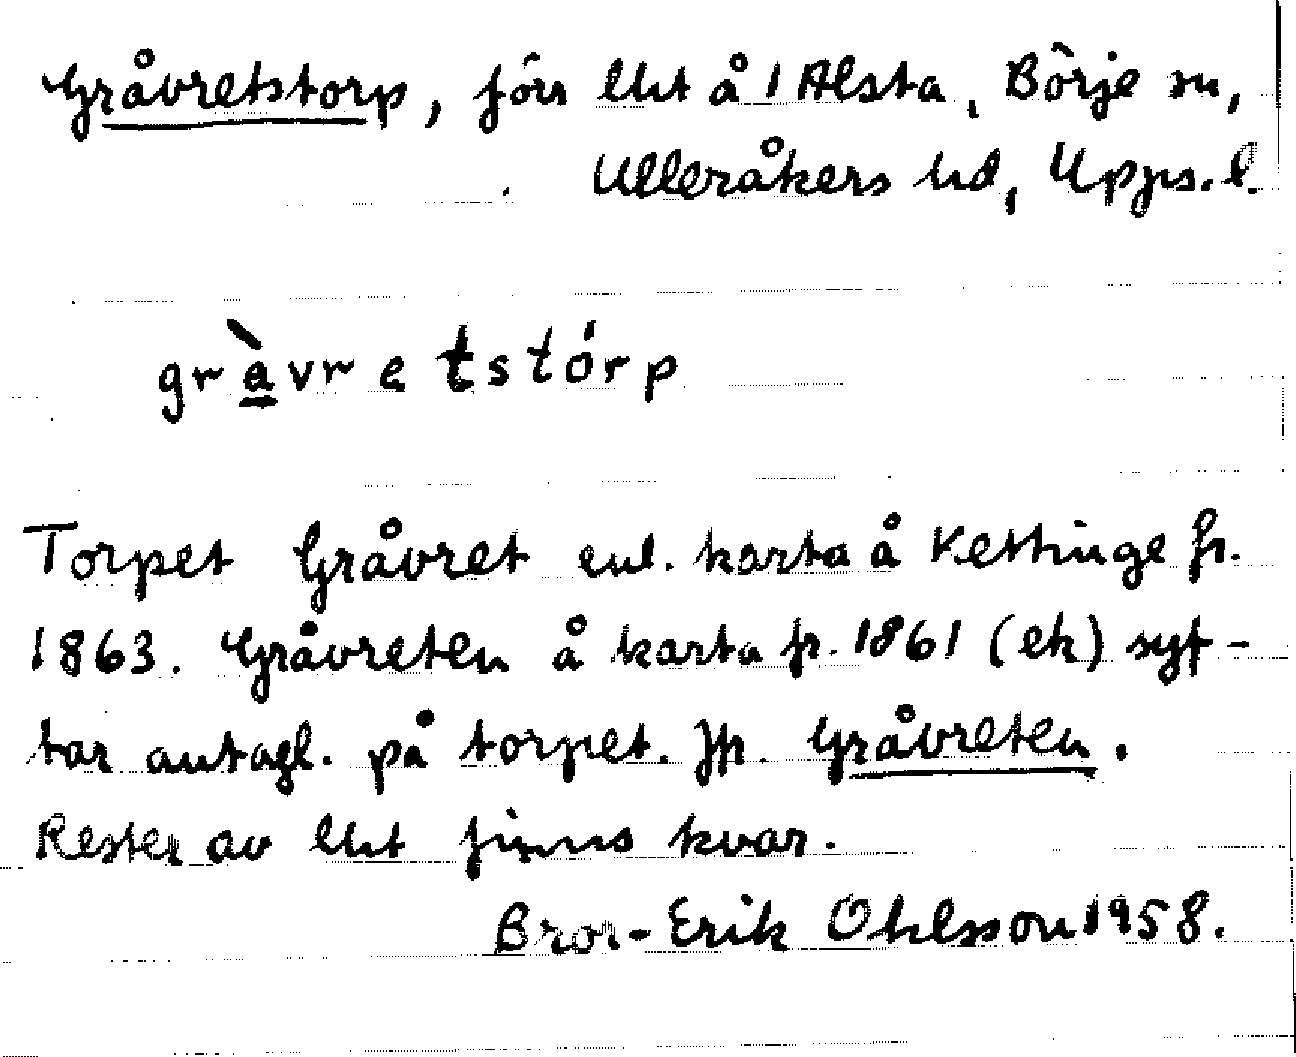 Gråvretstorp, förr lht å 1 Alsta, Börje sn,
Ulleråkers hd, Upps. l.
gràvretstórp
Torpet Gråvret enl. karta å Kettinge fr.
1863. Gråvreten å karta fr. 1861 (ek) syf-
tar antagl. på torpet. Jfr. Gråvreten.
Rester av lht finns kvar.
Bror-Erik Ohlsson 1958.